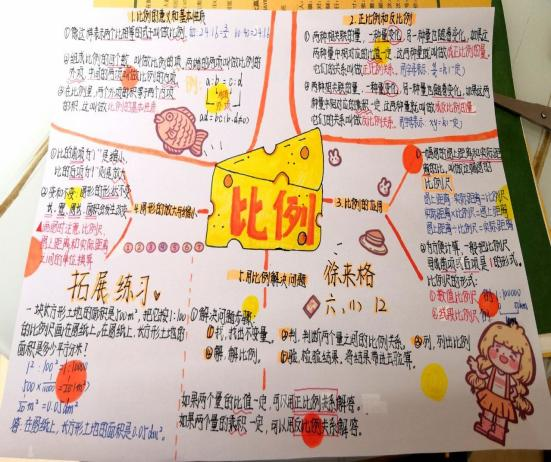 1.比例的意义和基本性质
①像这样表示两个比相等的式子叫做比例。
②组成比例的四个数,叫做比例的项。两端的两项叫做比例的
外项,中间的两项叫做比例的内项。
③在比例里,两个外项的积等于两个内项
的积,这叫做比例的基本性质
例:
a:b=c:d
内项
外项
ad=bc(b.d≠0)
2.正比例和反比例
①两种相关联的量,一种量变化,另一种量也随着变化,如果这
两种量中相对应的比值一定,这两种量就叫做成正比例的量,
它们的关系叫做正比例关系。
②两种相关联的量,一种量变化,另一种量也随着变化,如果这两
种量中相对应的乘积一定,这两种量就叫做成反比例的量,
它们的关系叫做反比例关系。用字母表示:xy=k(一定)
①比的前项为1是缩小,
比的后项为1则是放大
4.图形的放大与缩小
比例
3.比例的应用
①一幅图的图上距离和实际距
离的比,叫做这幅图的
比例尺
②为了方便计算,一般把比例尺
③比例尺的形式:
①数值比例尺
②线段比例尺
①②③④⑤⑥⑦
图上距离和实际距离
之间的单位换算
徐来格
六、(1) 12
拓展练习。
一块长方形土地的面积是500m²,把它按1:100
的比例尺画在图纸上。在图纸上,长方形土地的
面积是多少平方分米?
答:在图纸上,长方形土地的面积是0.05dm²。
5.用比例解决问题
①解决问题步骤:
①找,找出不变量。
②判,判断两个量之间的比例关系。
③列,列出比例
④解,解比例。
⑤验,检验结果,将结果带进去验算。
如果两个量的比值一定,可以用正比例关系解答。
如果两个量的乘积一定,可以用反比例关系解答。